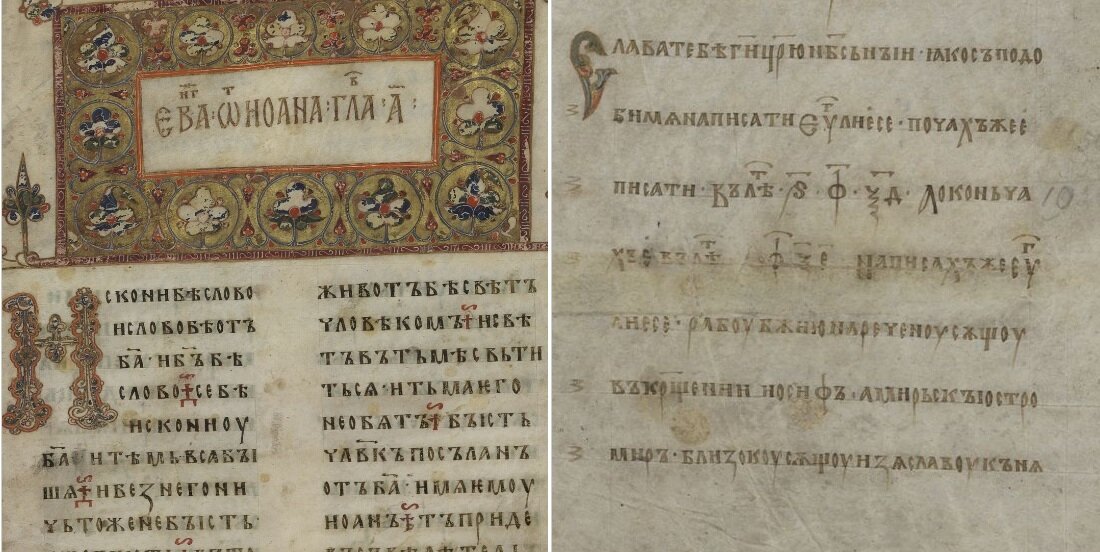 ЕВА҃Н҃Г҃ · Ѿ ИОАНА · ГЛА҃В · А҃ ·
ИСКОНИ БѢ СЛОВО
И СЛОВО БѢ ОТЪ
БА҃ · И БЪ҃ БѢ
СЛОВО · СЕ БѢ
ИСКОНИ ОУ
БА҃ · И ТѢМЬ ВСА БЫ
ШѦ · И БЕЗ НЕГО НИ
ЧЬТОЖЕ НЕ БЫСТЬ ·
ЖИВОТЪ БѢ СВѢТЪ
ЧЛОВѢКОМЪ · И СВѢ
ТЪ ВЪ ТЬМѢ СВЬТИ
ТЬСѦ · И ТЬМА ѤГО
НЕ ОБѦТЪ · БЫСТЬ
ЧЛ҃ВКЪ ПОСЪЛАНЪ
ОТЪ БА҃ · ИМѦ ѤМОУ
ИОАНЪ · ТЪ ПРИДЕ
СЛАВА ТЕБѢ ГИ҃ ЦР҃Ю НБ҃СЬНЫИ · ꙖКО СЪПОДО
БИ МѦ НАПИСАТИ ЕУ҃Г҃ЛИЕ СЕ · ПОЧАХЪ ЖЕ Е
ПИСАТИ · ВЪ ЛѢ҃Т · Ѕ҃ · Ф҃ · Ѯ҃Д · А ОКОНЬЧА
ХЪ Е ВЪ ЛѢ҃Т · Ѕ҃ · Ф҃ · Ѯ҃Е · НАПИСАХЪ ЖЕ ЕУ҃Г҃
ЛИЕ СЕ · РАБОУ БЖ҃ИЮ НАРЕЧЕНОУ СѪЩОУ
ВЪ КРЬ҃ЩЕНИИ ИОСИФЪ · А МИРЬСКЫ ОСТРО
МИРЪ · БЛИЗОКОУ СѪЩОУ ИЗѦСЛАВОУ КЪНѦ